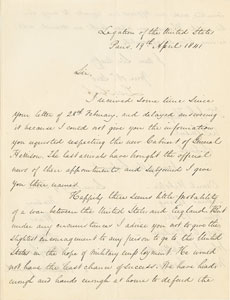 Legation of the United States
Paris, 19th April 1841
Sir
I received some time since
your letter of 28th February, and delayed answering
it because I could not give you the information
you requested respecting the new Cabinet of General
Harrison. The last arrivals have brought the official
news of their appointments, and I give
you their names.
Happily there seems little probability
of a war between the United States and England. But
under any circumstances I advise you not to give the
slightest encouragement to any person to go to the United
States in the hope of military employment. He would
not have the least chance of success. We have heads
enough and hands enough at home to defend the